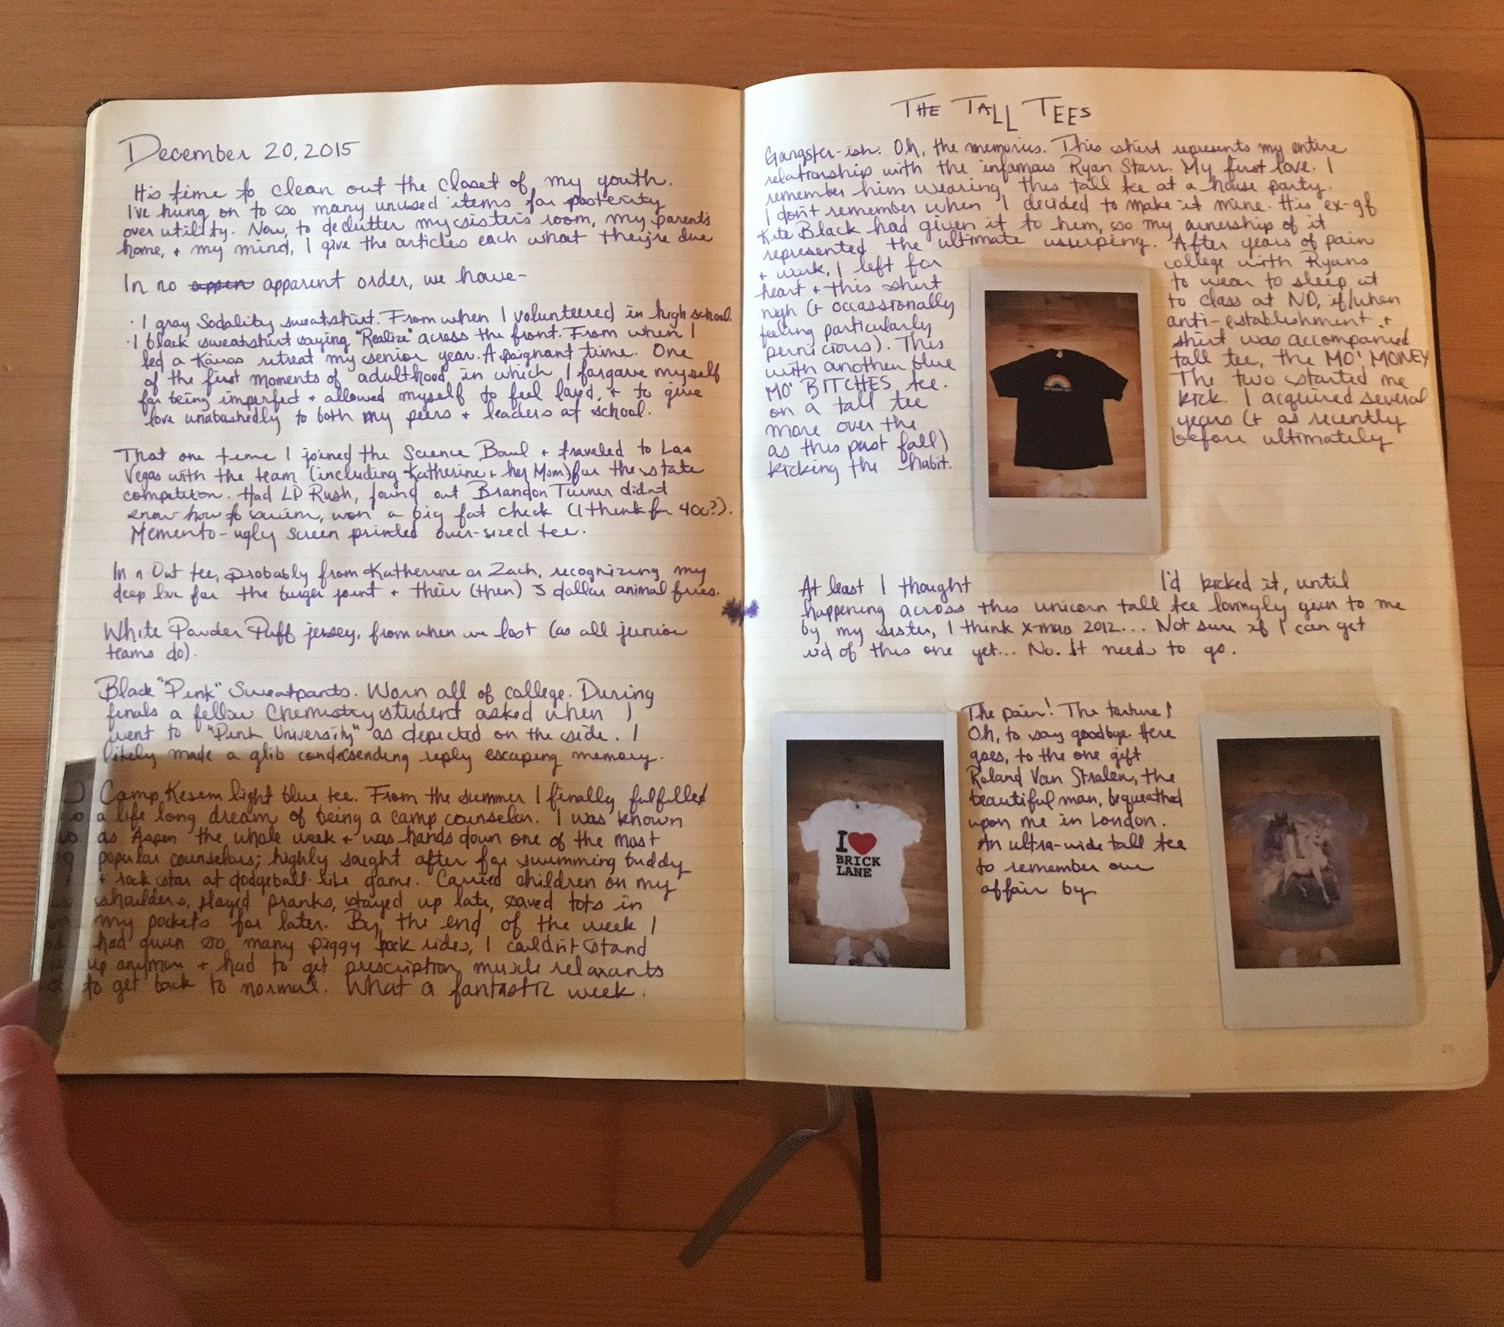 December 20, 2015
It's time to clean out the closet of my youth.
I've hung on to so many unused items for posterity
over utility. Now, to declutter my sister's room, my parent's
home, + my mind, I give the articles each what they're due
In no appen apparent order, we have-
· 1 gray Sodality sweatshirt. From when I volunteered in high school
· 1 black sweatshirt saying "Realize" across the front. From when I
led a Kairos retreat my senior year. A poignant time. One
of the first moments of adulthood in which I forgave myself
for being imperfect + allowed myself to feel loved, + to give
love unabashedly to both my peers + leaders at school.
That one time I joined the Science Bowl + traveled to Las
Vegas with the team (including Katherine + her Mom) for the state
competition. Had LP Rush, found out Brandon Turner didn't
know how to swim, won a big fat check (I think for 400?).
Memento - ugly screen printed over-sized tee.
In n Out tee, probably from Katherine or Zach, recognizing my
deep love for the burger joint + their (then) 3 dollar animal fries.
White Powder Puff jersey, from when we lost (as all junior
teams do).
Black "Pink" Sweatpants. Worn all of college. During
finals a fellow Chemistry student asked when I
went to "Pink University" as depicted on the side. I
likely made a glib condesending reply escaping memory.
Camp Kesem light blue tee. From the summer I finally fulfilled
a life long dream of being a camp counselor. I was known
as Aspen the whole week + was hands down one of the most
popular counselors; highly sought after for swimming buddy
+ rock star at dodgeball-like game. Carried children on my
shoulders, played pranks, stayed up late, saved tots in
my pockets for later. By the end of the week I
had given so many piggy back rides, I couldn't stand
up anymore + had to get prescription muscle relaxants
to get back to normal. What a fantastic week.
THE TALL TEES
Gangster-ish. Oh, the memories. This shirt represents my entire
relationship with the infamous Ryan Starr. My first love. I
remember him wearing this tall tee at a house party.
I don't remember when I decided to make it mine. His ex-gf
Kate Black had given it to him, so my ownership of it
represented the ultimate usurping. After years of pain
+ work, I left for college with Ryans
heart + this shirt to wear to sleep at
nigh (+ occassionally to class at ND, if/when
feeling particularly anti-establishment +
pernicious). This shirt was accompanied
with another blue tall tee, the MO' MONEY
MO' BITCHES tee. The two started me
on a tall tee kick. I acquired several
more over the years (+ as recently
as this past fall) before ultimately
kicking the habit.
At least I thought I'd kicked it, until
happening across this unicorn tall tee lovingly given to me
by my sister, I think x-mas 2012... Not sure if I can get
rid of this one yet... No. It needs to go.
The pain! The torture!
Oh, to say goodbye. Here
goes, to the one gift
Roland Van Stralen, the
beautiful man, bequeathed
upon me in London.
An ultra-wide tall tee
to remember our
affair by
I
BRICK
LANE
25